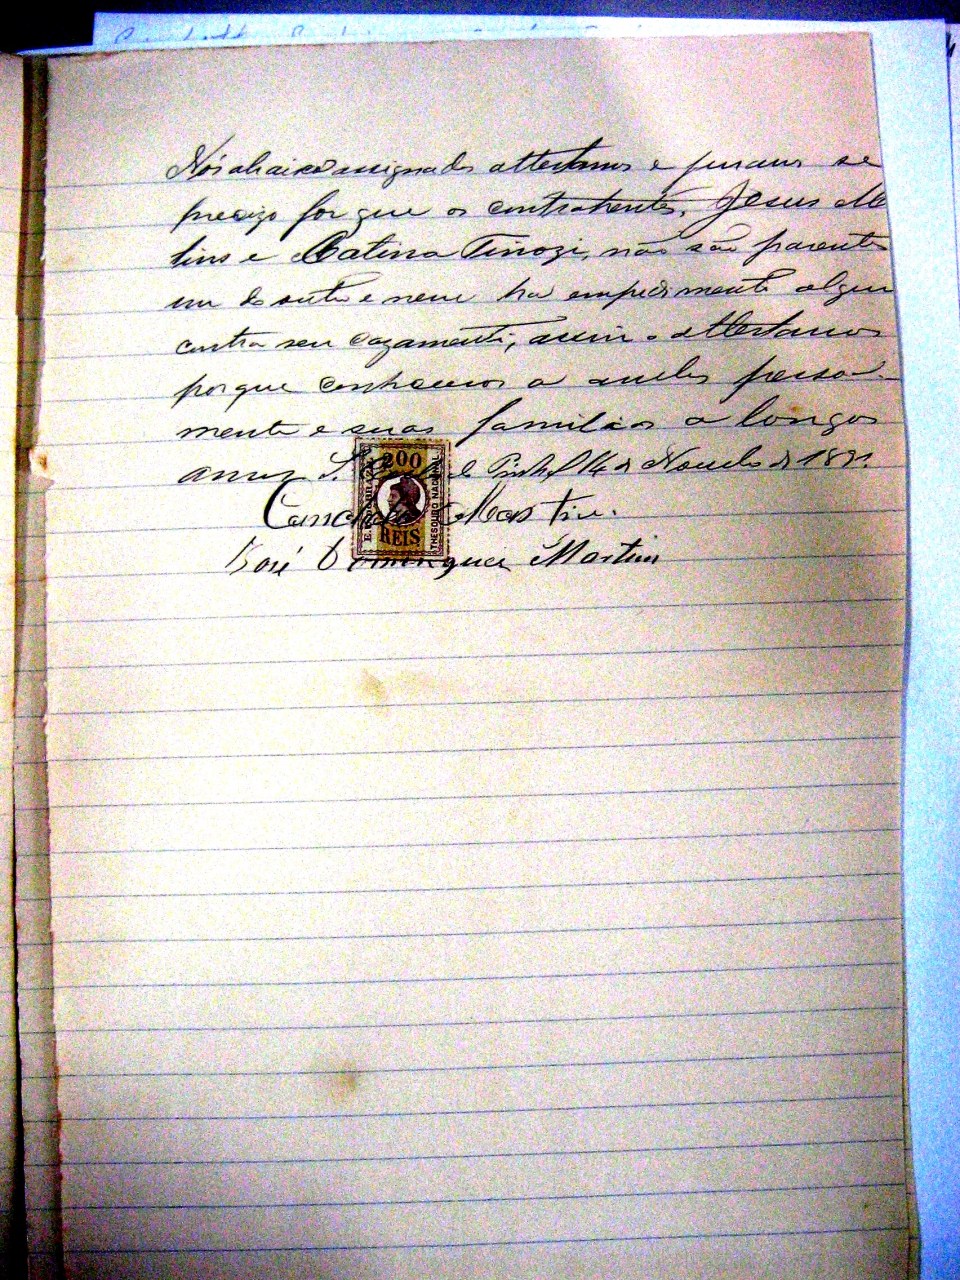 Nós abaixo assignados attestamos e juramos se
precizo for que os contrahentes, Jesus
tins e Catina Tinozi, não são parentes
um do outro e nem ha empedimento algum
contra seu cazamento, assim o attestamos
porque conhecemos a ambos pessoal-
mente e suas familias a longos
annos do Pinhal, 14 de Novembro de 1891.
Martins.
José Domingues Martins
200
REIS
THESOURO NACIONAL